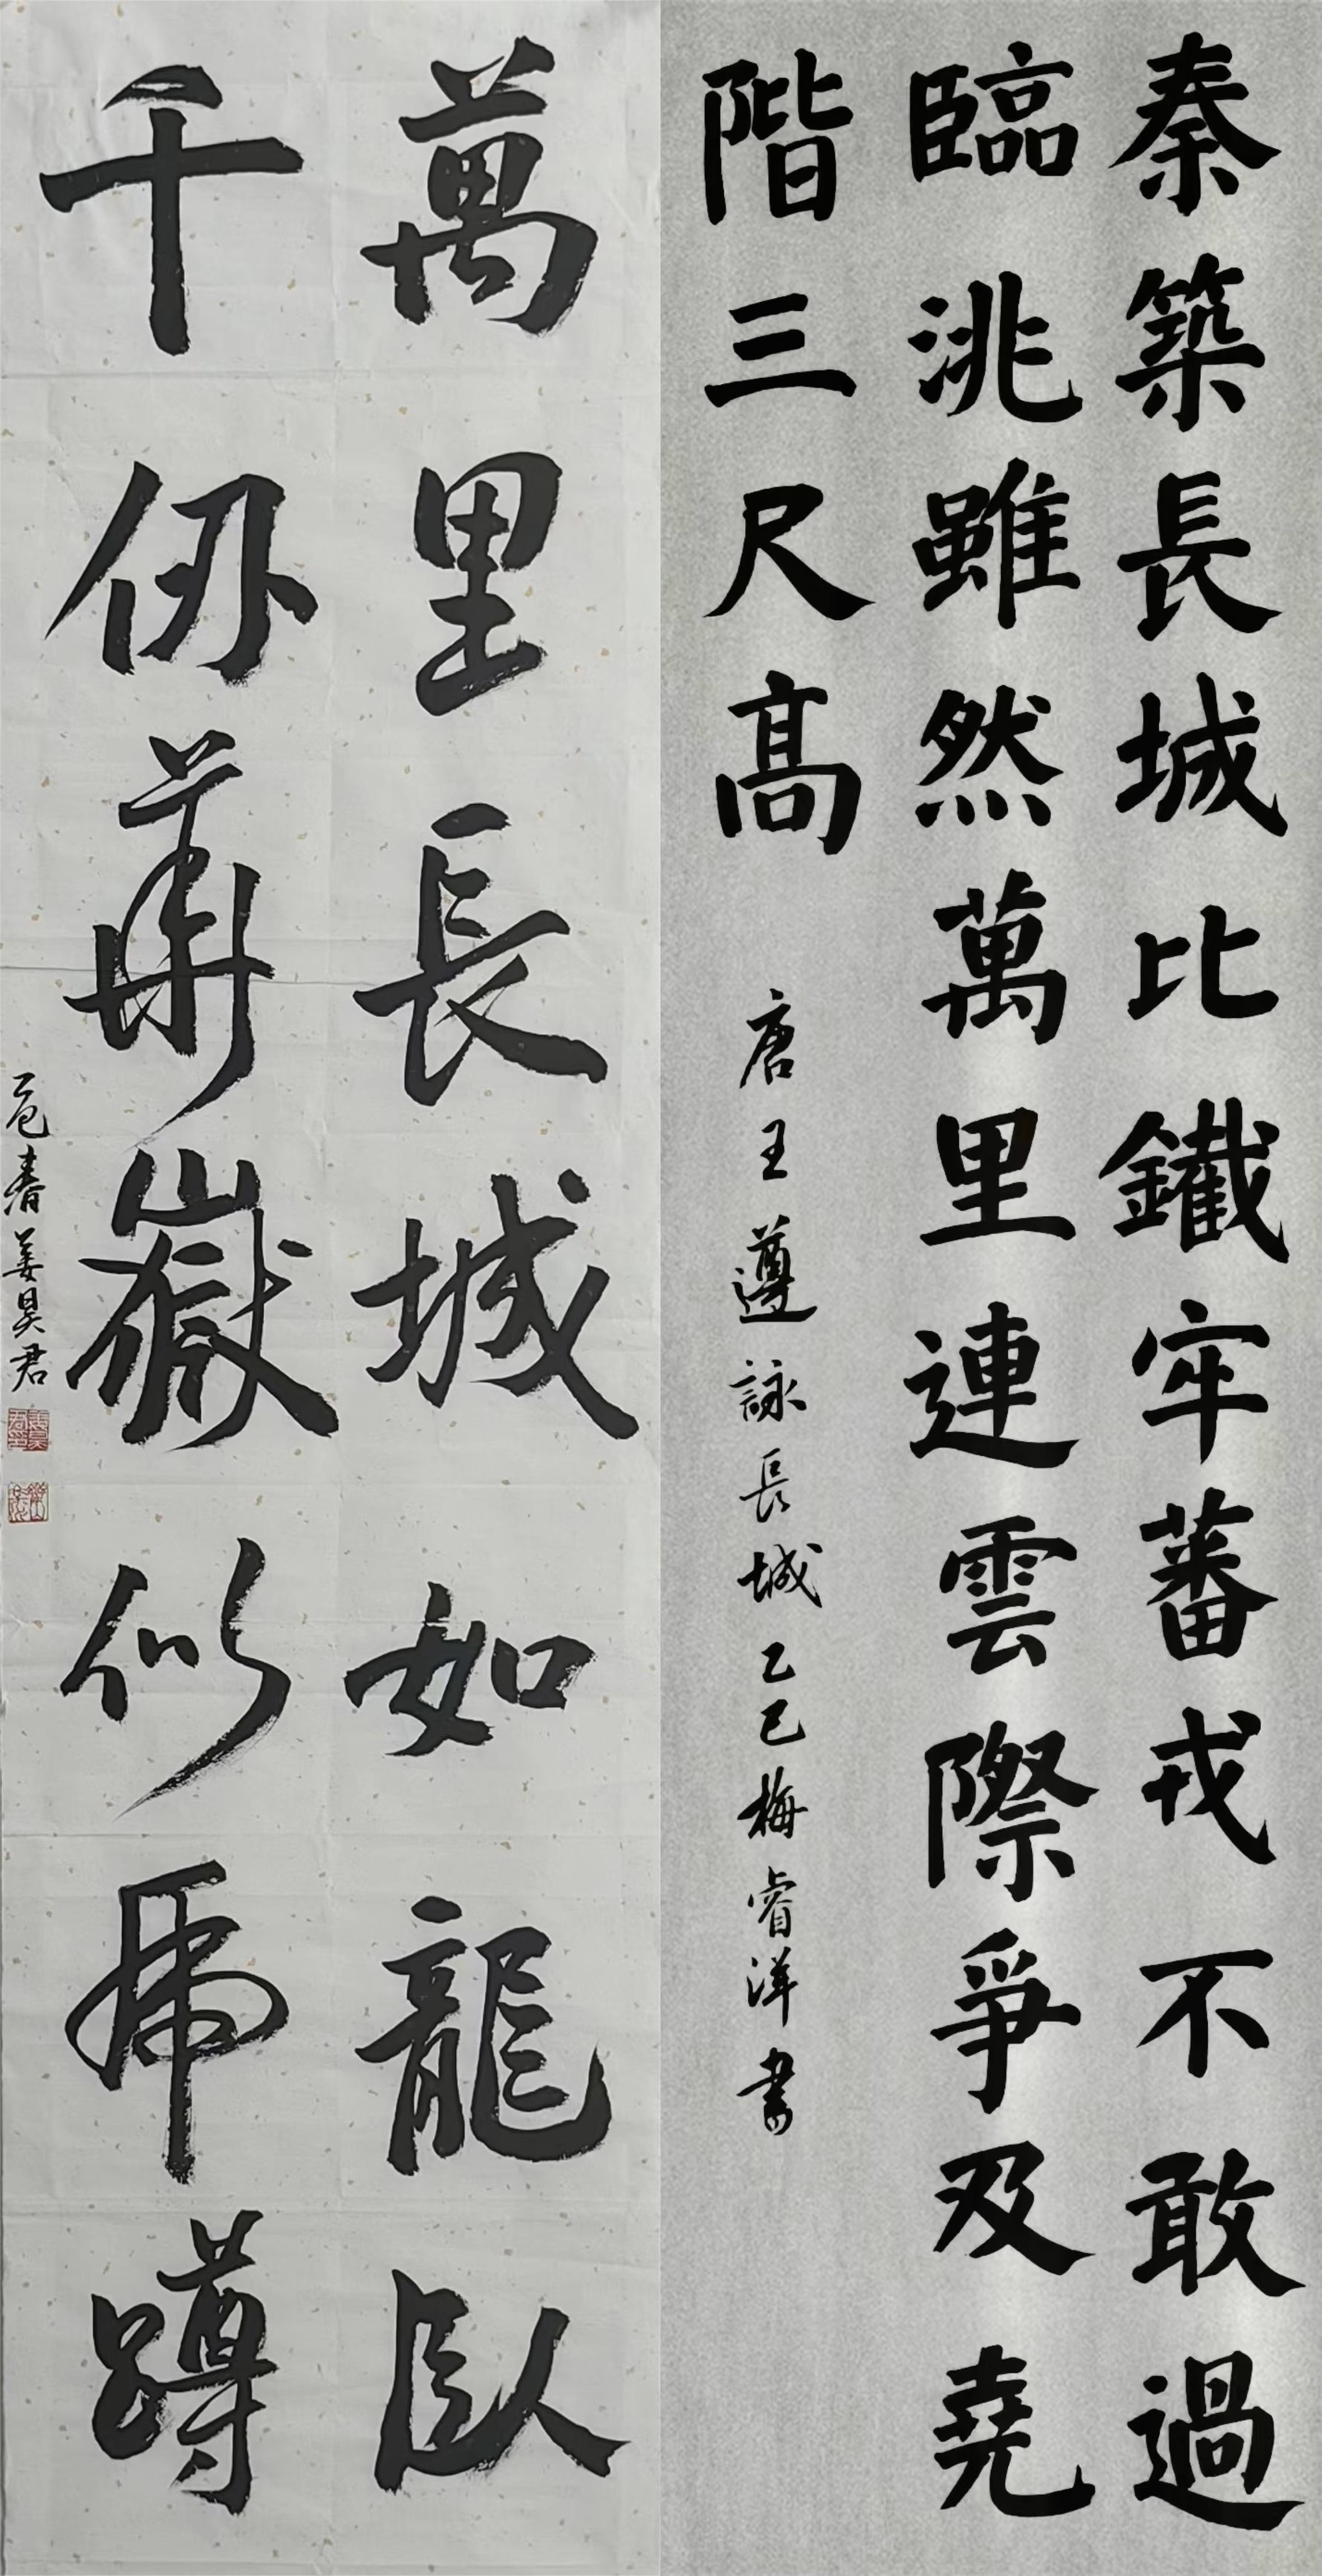 秦築長城比鐵牢蕃戎不敢過
臨洮雖然萬里連雲際爭及堯
階三尺高
唐王遵詠長城乙巳梅睿洋書
萬里長城如龍臥
千仞華嶽似虎蹲
乙巳春姜昊君